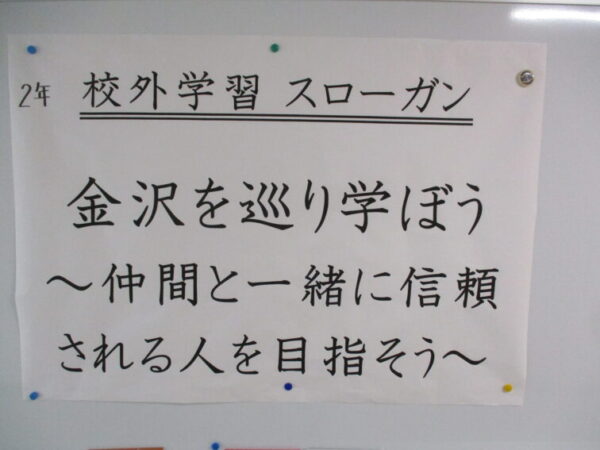 2年 校外学習 スローガン
金沢を巡り学ぼう
～仲間と一緒に信頼
される人を目指そう～